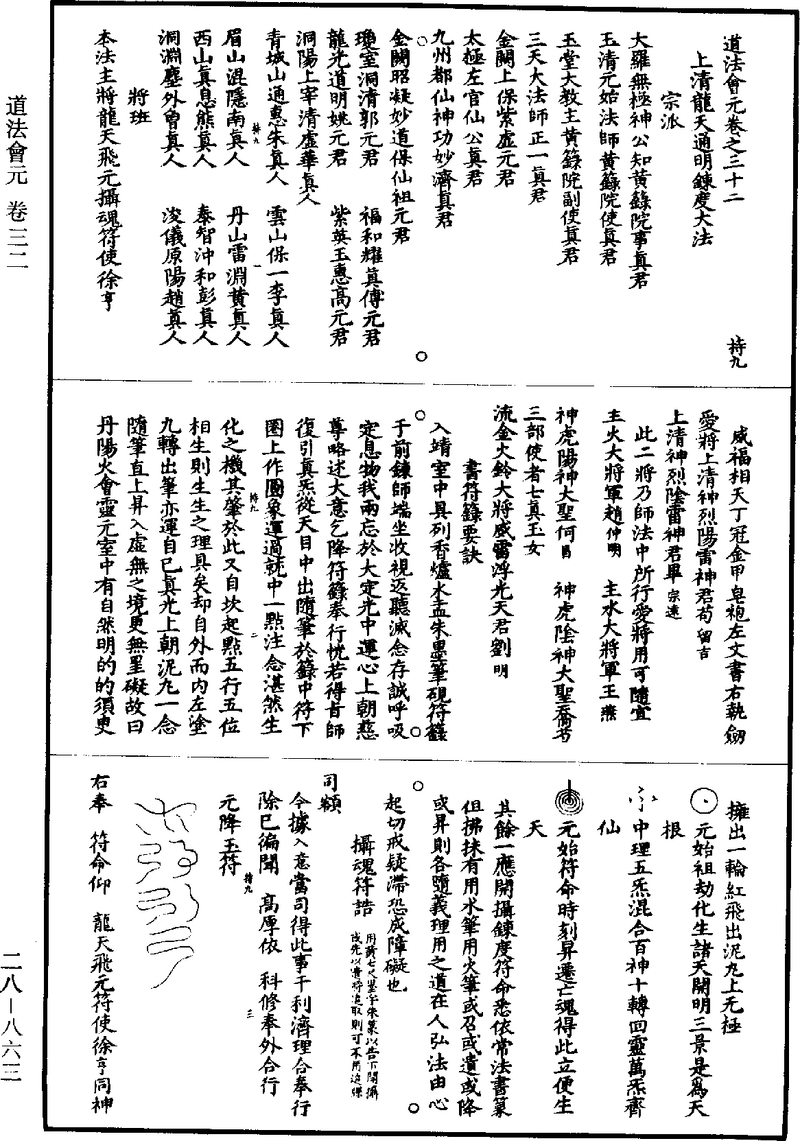 道法會元卷之三十二
持九
上清龍天通明鍊度大法
宗派
大羅無極神公知黃籙院事真君
玉清元始法師黃籙院使真君
玉堂大教主黃籙院副使真君
三天大法師正一真君
金闕上保紫虛元君
太極左官仙公真君
九州都仙神功妙濟真君
金闕昭凝妙道保仙祖元君
瓊室洞清郭元君 福和耀真傅元君
龍光道明姚元君 紫英玉惠高元君
洞陽上宰清虛華真人
青城山通惠朱真人 雲山保一李真人
持九 一
眉山混隱南真人 丹山雷淵黃真人
西山真息熊真人 泰智沖和彭真人
洞淵塵外曾真人 浚儀原陽趙真人
將班
本法主將龍天飛元攝魂符使徐亨
威福相天丁冠金甲皂袍左文書右執劒
愛將上清神烈陽雷神君苟留吉
上清神烈陰雷神君畢宗遠
此二將乃師法中所行愛將用可隨宜
主火大將軍趙仲明 主水大將軍王燕
神虎陽神大聖何昌 神虎陰神大聖喬芍
三部使者七真玉女
流金火鈴大將威雷浮光天君劉明
書符籙要訣
入靖室中具列香爐水盂朱墨筆硯符籙
于前鍊師端坐收視返聽滅念存誠呼吸
定息物我兩忘於大定光中運心上朝慈
尊略述大意乞降符籙奉行恍若得旨師
復引真炁從天目中出隨筆於籙中符下
持九 二
圈上作圓象運過就中一點注念湛然生
化之機其肇於此又自坎起點五行五位
相生則生生之理具矣却自外而內左塗
九轉出筆亦運自己真光上朝泥丸一念
隨筆直上昇入虛無之境更無罣礙故曰
丹陽火會靈元室中有自然明的的須臾
擁出一輪紅飛出泥丸上无極
元始祖劫化生諸天開明三景是為天
根
中理五炁混合百神十轉回靈萬炁齊
仙
元始符命時刻昇遷亡魂得此立便生
天
其餘一應開攝鍊度符命悉依常法書篆
但拂抹有用水筆用火筆或召或遣或降
或昇則各隨義理用之道在人弘法由心
起切戒疑滯恐成障礙也
攝魂符誥
司額
今據入意當司得此事干利濟理合奉行
除已徧聞 高厚依 科修奉外合行
持九 三
元降玉符
右奉 符命仰 龍天飛元符使徐亨同神
道法會元 卷三二
二八—八六三